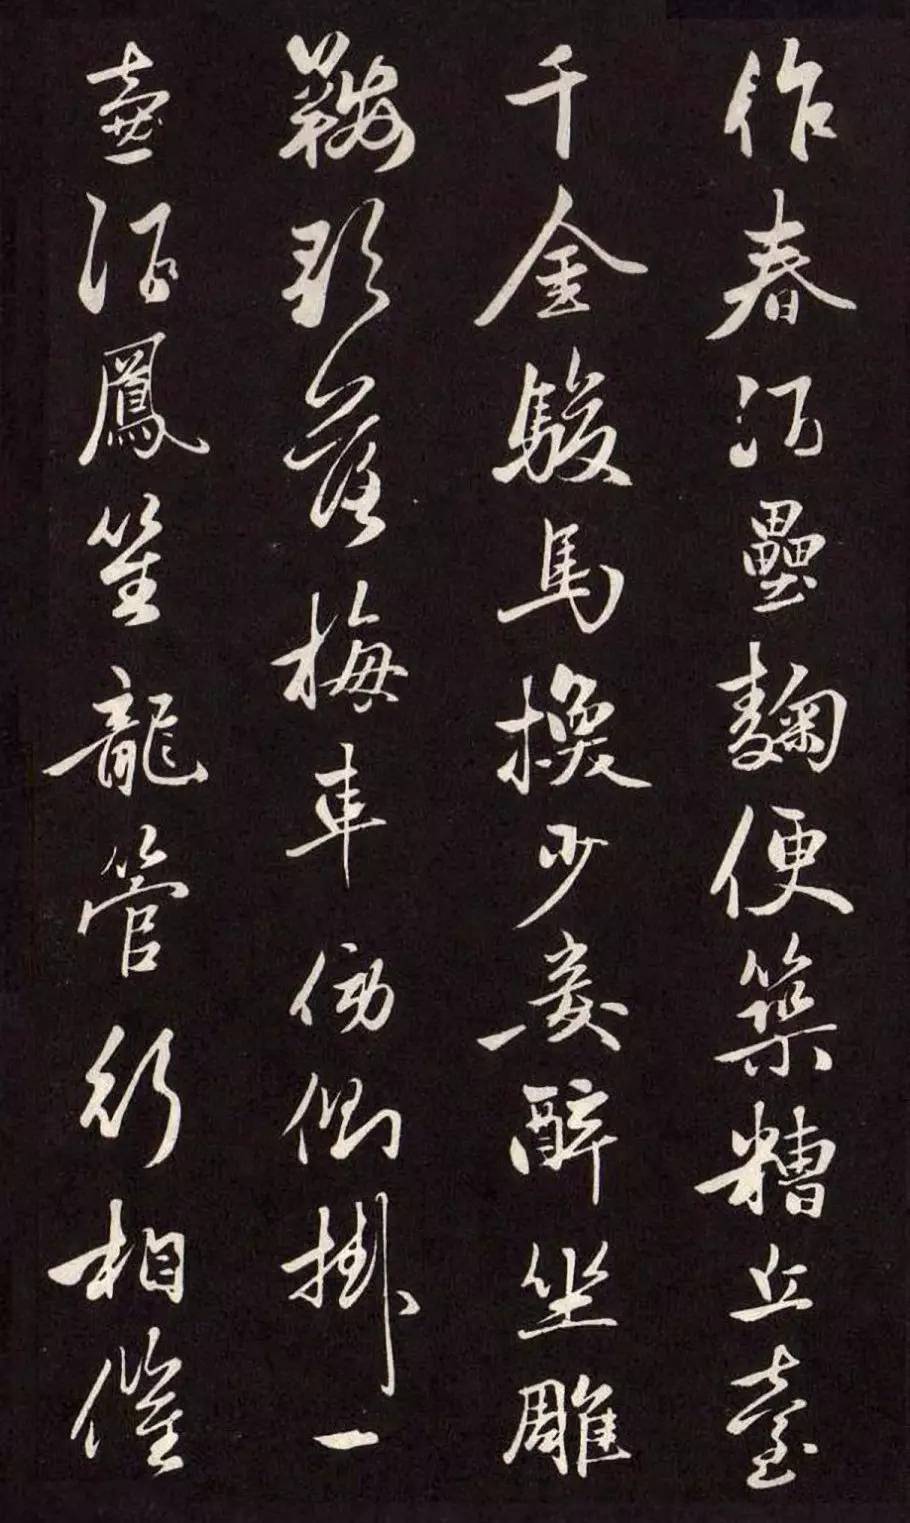 作春酒壘麴便築糟丘臺
千金駿馬換少妾醉坐雕
鞍歌落梅車傍側掛一
壺酒鳳笙龍管行相催